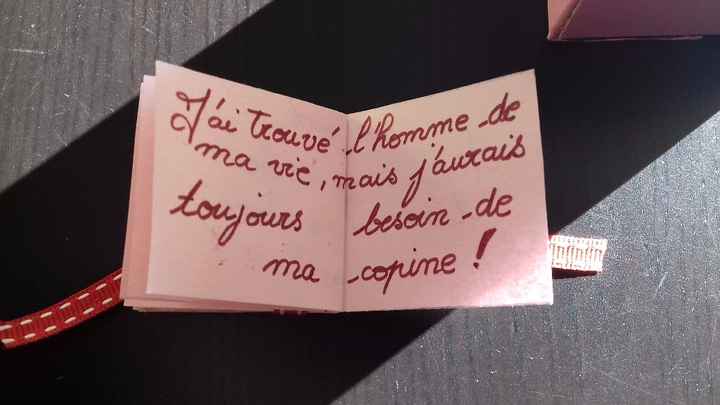 J'ai trouvé l'homme de
ma vie, mais j'aurais
toujours besoin de
ma copine !